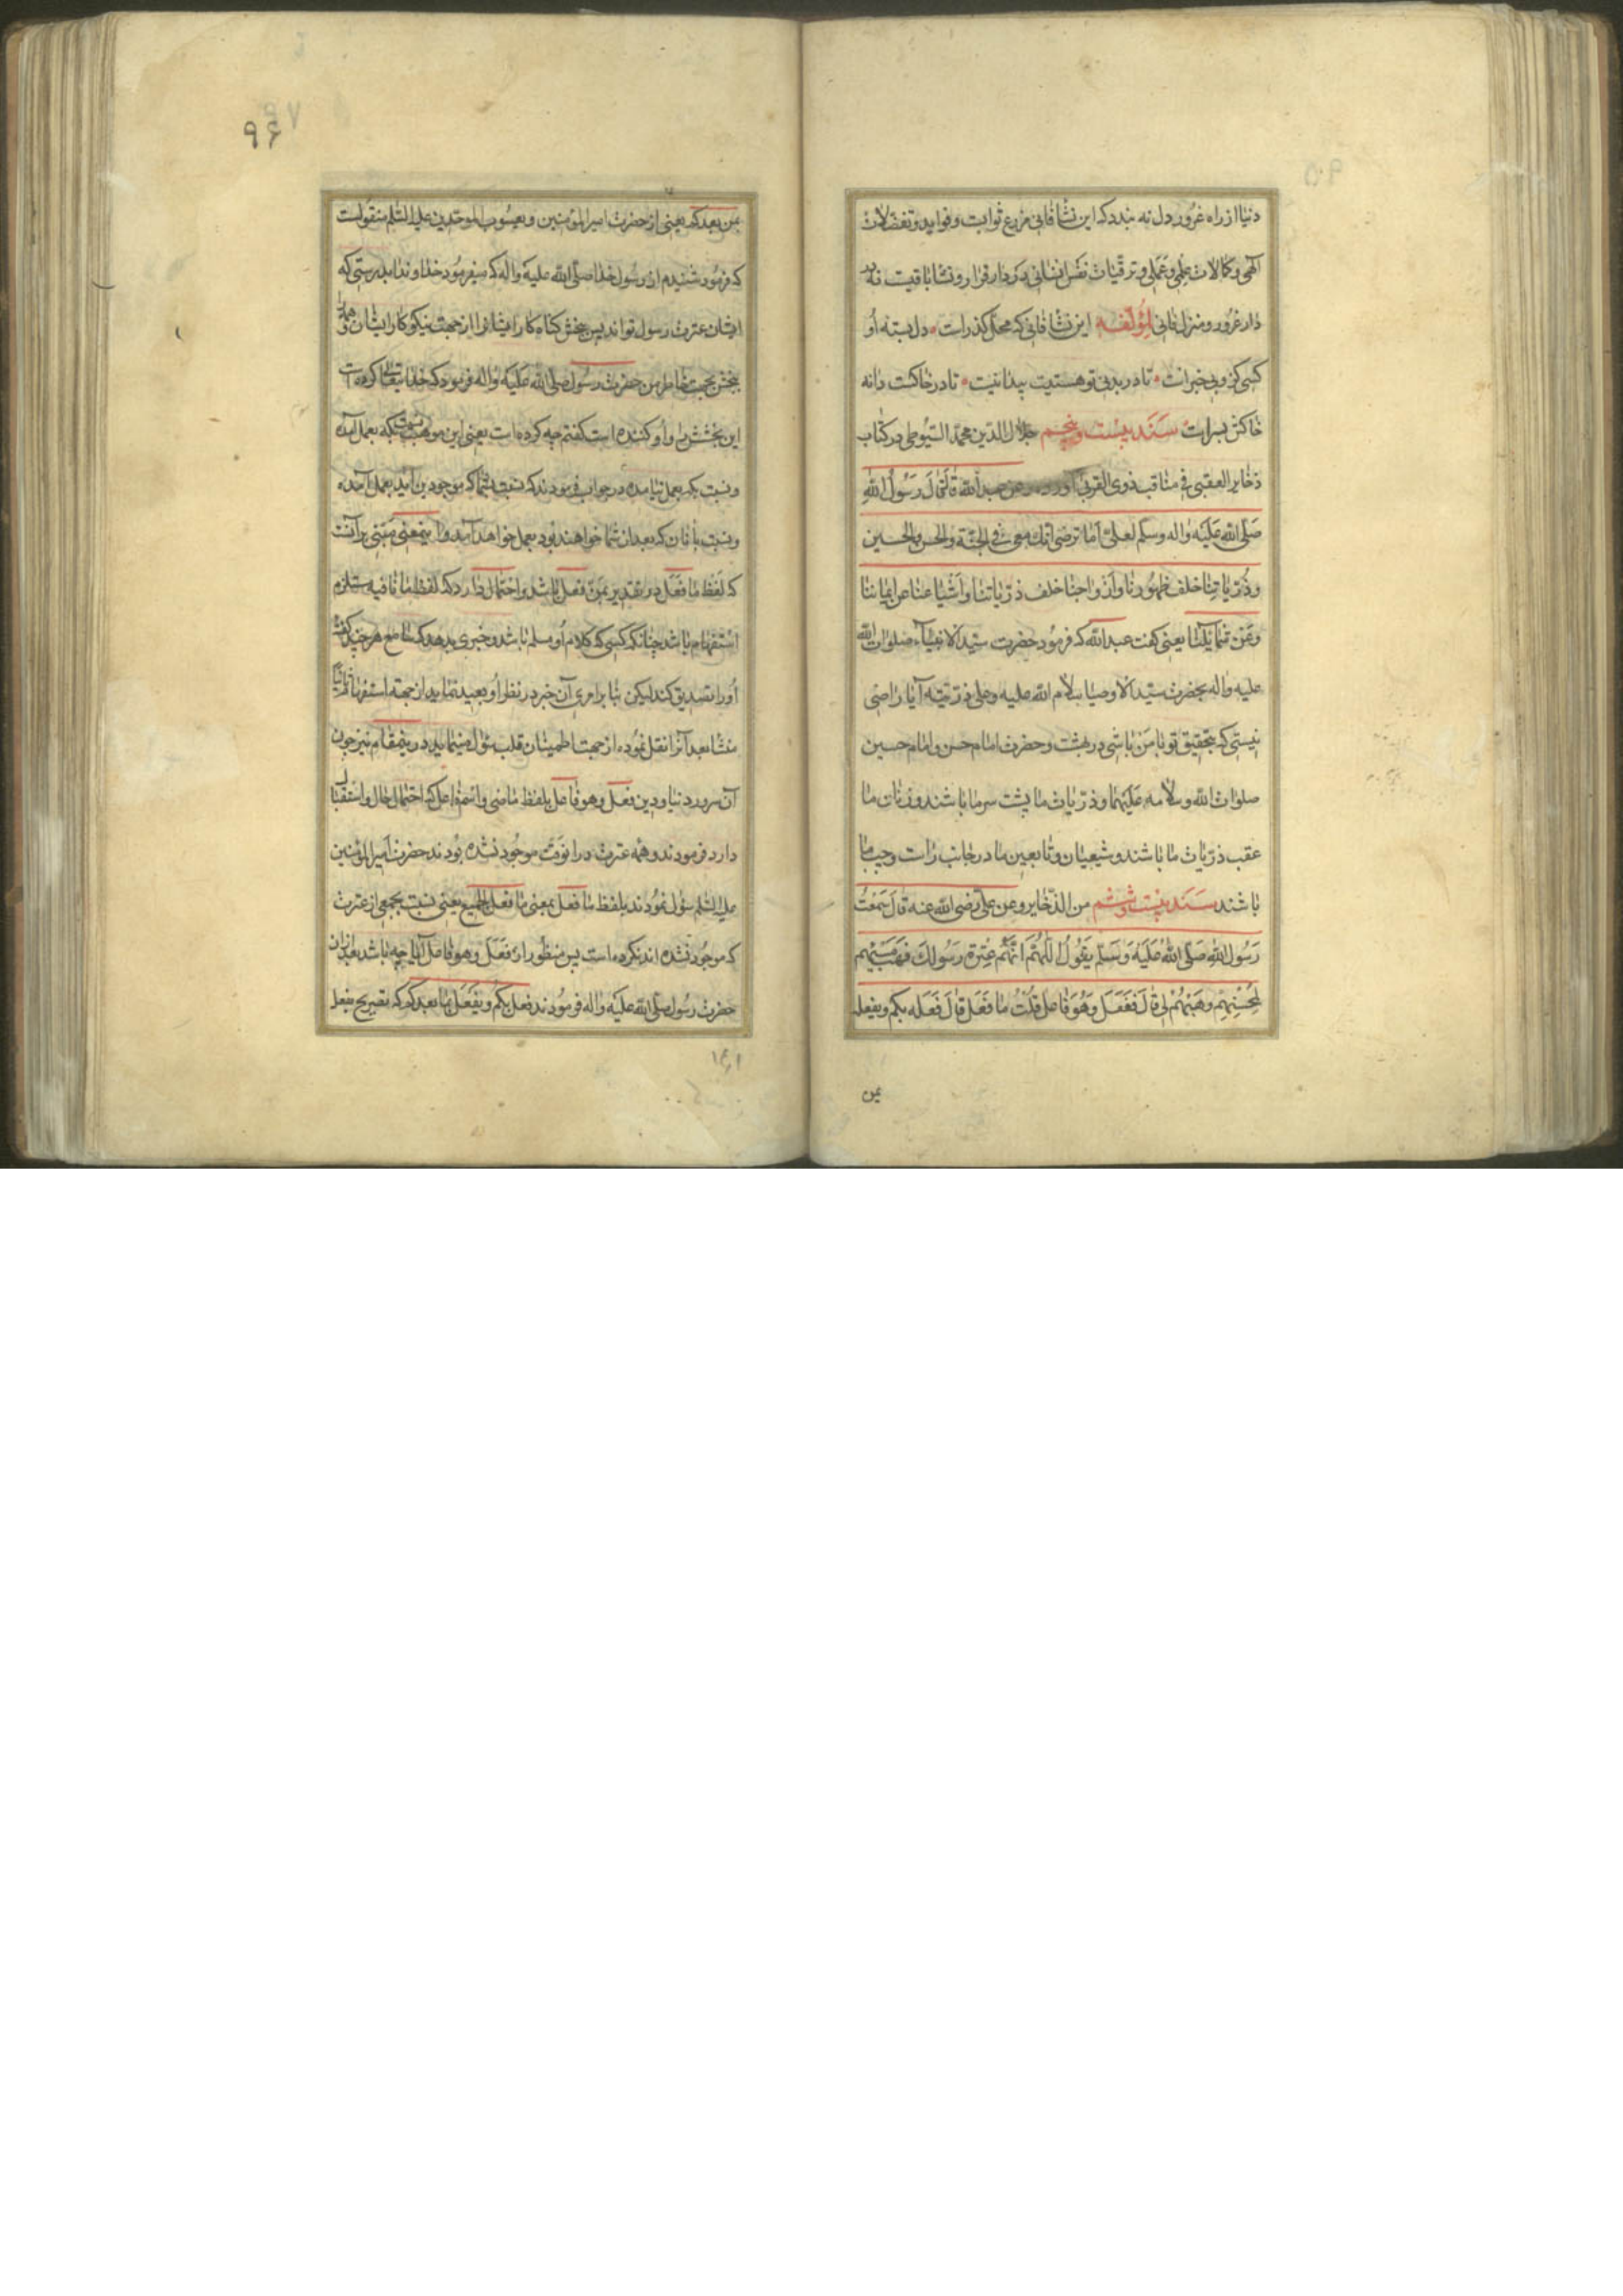 دنیا از راه غرور دل نه بندد که این نشأ فانی مزرع ثوابت و فواید و تفضّلات
الهی و کمالات علمی و عملی و ترقّیات نفس انسانی در دار قرار و نشأ باقیت نه در
دار غرور و منزل فانی لمؤلّفه این نشأ فانی که محلّ کذرات دل بسته او
کسی کز وبی خبرات تا در بدنی تو هستیت پیدا نیت تا در خاکست دانه
خاکش بسرات سند بیست و پنجم جلال الدین محمّد السّیوطی در کتاب
ذخایر العقبی فی مناقب ذوی القربی آورده و عن عبد الله قال قال رسول الله
صلّی الله علیه واله وسلّم لعلیّ اما ترضی انّک معی فی الجنّة والحسن والحسین
وذرّیاتنا خلف ظهورنا وازواجنا خلف ذرّیاتنا واشیاعنا عن ایماننا
وعن شمایلنا یعنی کفت عبد الله که فرمود حضرت سیّد الانبیاء صلوات الله
علیه واله بحضرت سیّد الاوصیا سلام الله علیه وعلی ذرّیّته آیا راضی
نیستی که بتحقیق تو با من باشی در بهشت و حضرت امام حسن و امام حسین
صلوات الله وسلامه علیهما و ذرّیات ما پشت سر ما باشند و زنان ما
عقب ذرّیات ما باشند و شیعیان و تابعین ما در جانب راست و چپ ما
باشند سند بیست وششم من الذّخایر وعن علی رضی الله عنه قال سمعت
رسول الله صلّی الله علیه وسلّم یقول اللّهمّ انّهم عترة رسولک فهب مسیئهم
لمحسنهم وهبهم لی قال ففعل وهو فاعل قلت ما فعل قال فعله بکم ویفعله
بمن
۹۶
بمن بعدکم یعنی از حضرت امیر المؤمنین و یعسوب الموحّدین علیه السّلم منقولست
که فرمود شنیدم از رسول خدا صلّی الله علیه واله که میفرمود خداوندا بدرستی که
ایشان عترت رسول تواند پس ببخش کناه کار ایشانرا از جهت نیکو کار ایشان و همه را
ببخش بجهت خاطر من حضرت رسول صلّی الله علیه واله فرمود که خدا یتعالی کرده است
این بخشش را و او کننده است کفتم چه کرده است یعنی این موهبت نسبت بکه بعمل آمده
و نسبت بکه بعمل نیامده در جواب فرمودند که نسبت بشما که موجودین اید بعمل آمده
و نسبت بآنان که بعد از شما خواهند بود بعمل خواهد آمد و اینمعنی مبتنی بر آنست
که لفظ ما فعل در تقدیر بمن فعل باشد و احتمال دارد که لفظ ما نافیه مستلزم
استفهام باشد چنانکه کسی که کلام او مسلم باشد و خبری بدهد که سامع هر چند کفتهٔ
او را تصدیق کند لیکن بنا بر امری آن خبر در نظر او بعید نماید از جهة استفهام
منشا بعد آنرا نقل نموده از جهت اطمینان قلب سؤال مینماید در ینمقام نیز چون
آن سرور دنیا و دین فعل وهو فاعل بلفظ ماضی و اسم فاعل که احتمال حال و استقبال
دارد فرمودند و همه عترت در انوقت موجود نشده بودند حضرت امیر المؤمنین
علیه السّلم سؤال نمودند بلفظ ما فعل بمعنی ما فعل الجمیع یعنی نسبت بجمعی از عترت
که موجود نشده اند نکرده است پس منظور از فعل وهو فاعل آیا چه باشد بعد از ان
حضرت رسول صلّی الله علیه واله فرمودند فعل بکم ویفعل بما بعدکم که تصریح بفعل